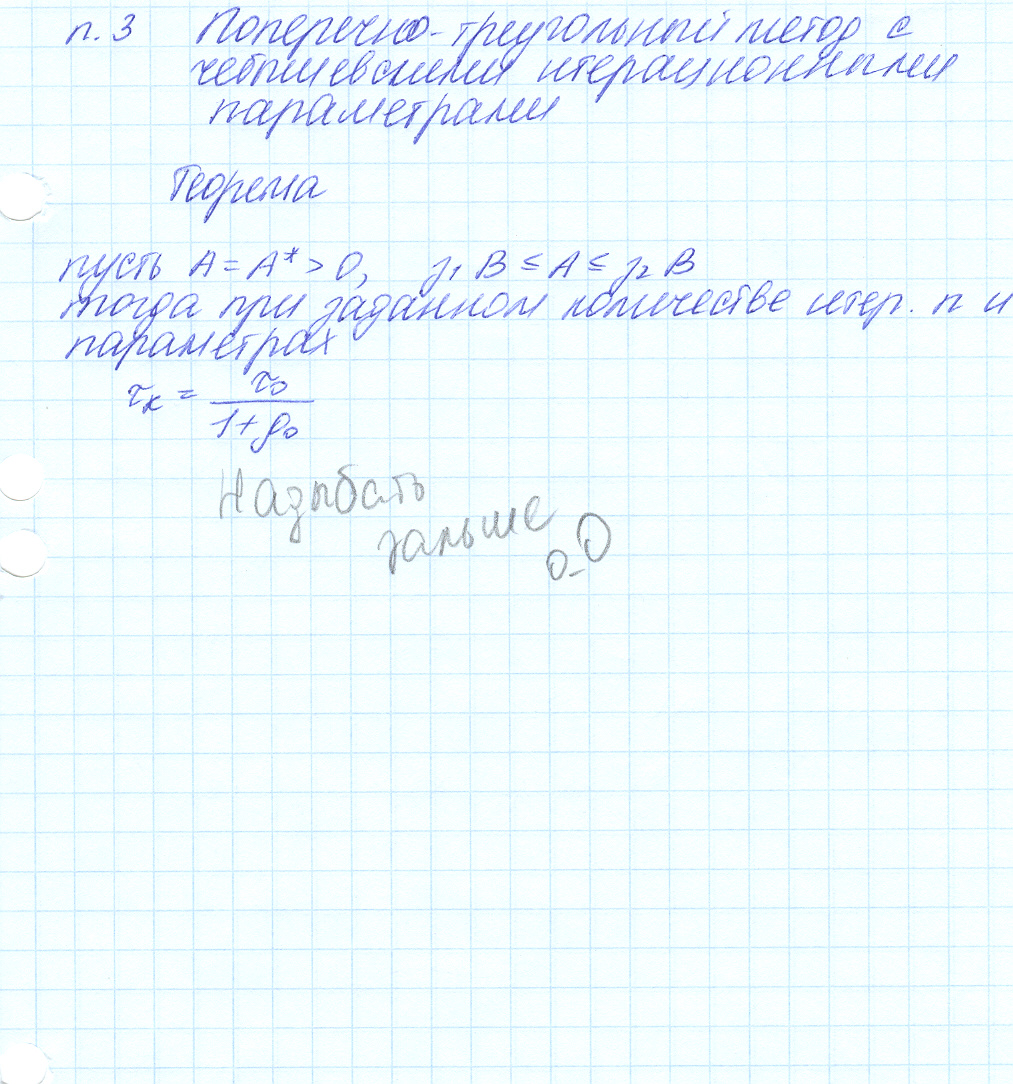 п. 3 Поперечно-треугольный метод с
чебышевскими итерационными
параметрами
Теорема
пусть A = A* > 0, γ₁ B ≤ A ≤ γ₂ B
тогда при заданном количестве итер. n и
параметрах
τₖ = τ₀ / (1 + ρ₀
Надыбать
дальше
о_О